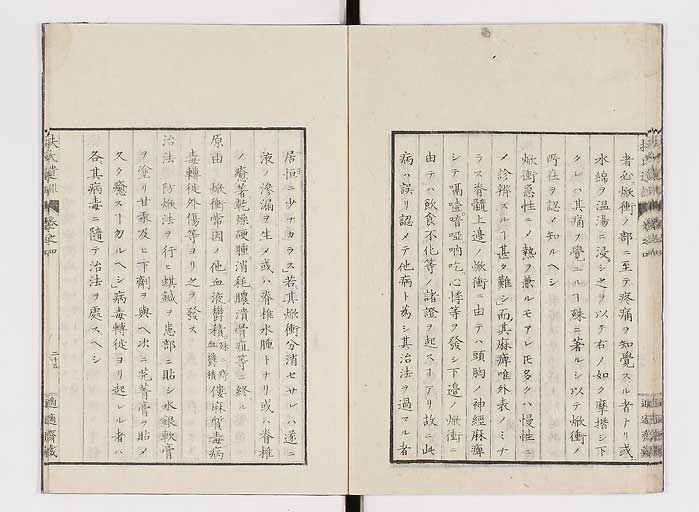 者必焮衝ノ部ニ至テ疼痛ヲ知覺スル者トリ或ハ
水綿ヲ温湯ニ浸シ之ヲ以テ右ノ如ク摩揩シ下
クレハ其痛ヲ覺ユルヿ殊ニ著ルシ以テ焮衝ノ
所在ヲ認メ知ルヘシ
焮衝急性ニメ熱ヲ兼ルモアレ𪜈多クハ慢性ニ
ノ診辨スルヿ甚タ難シ而其麻痺唯外表ノミナ
ラス脊髓上邉ノ焮衝ニ由テハ頭胸ノ神經麻痺
シテ嗝噎喑啞吶吃心悸等ヲ發シ下邉ノ焮衝ニ
由テハ飲食不化等ノ諸證ヲ起スヿアリ故ニ此
病ハ誤リ認メテ他病ト為シ其治法ヲ過マル者
居恒ニ少ナカラス若其焮衝分消セサレハ遂ニ
液ノ滲漏ヲ生メ或ハ脊椎水腫トナリ或ハ脊椎
ノ癒著乾燥硬腫消耗膿潰骨疽等ニ終ル
原由 焮衝常因ノ他血液鬱積殊ニ痔血機積僂麻質毒病
毒轉徙外傷等ヨリ之ヲ發ス
治法 防焮法ヲ行ヒ蜞鍼ヲ患部ニ貼シ水銀軟膏
ヲ塗リ甘汞及ヒ下劑ヲ與ヘ次ニ芫菁膏ヲ貼メ
久ク癒スヿ勿ルヘシ病毒轉徙ヨリ起レル者ハ
各其病毒ニ隨テ治法ヲ處スヘシ
扶氏遺訓
二十五
適適齋藏